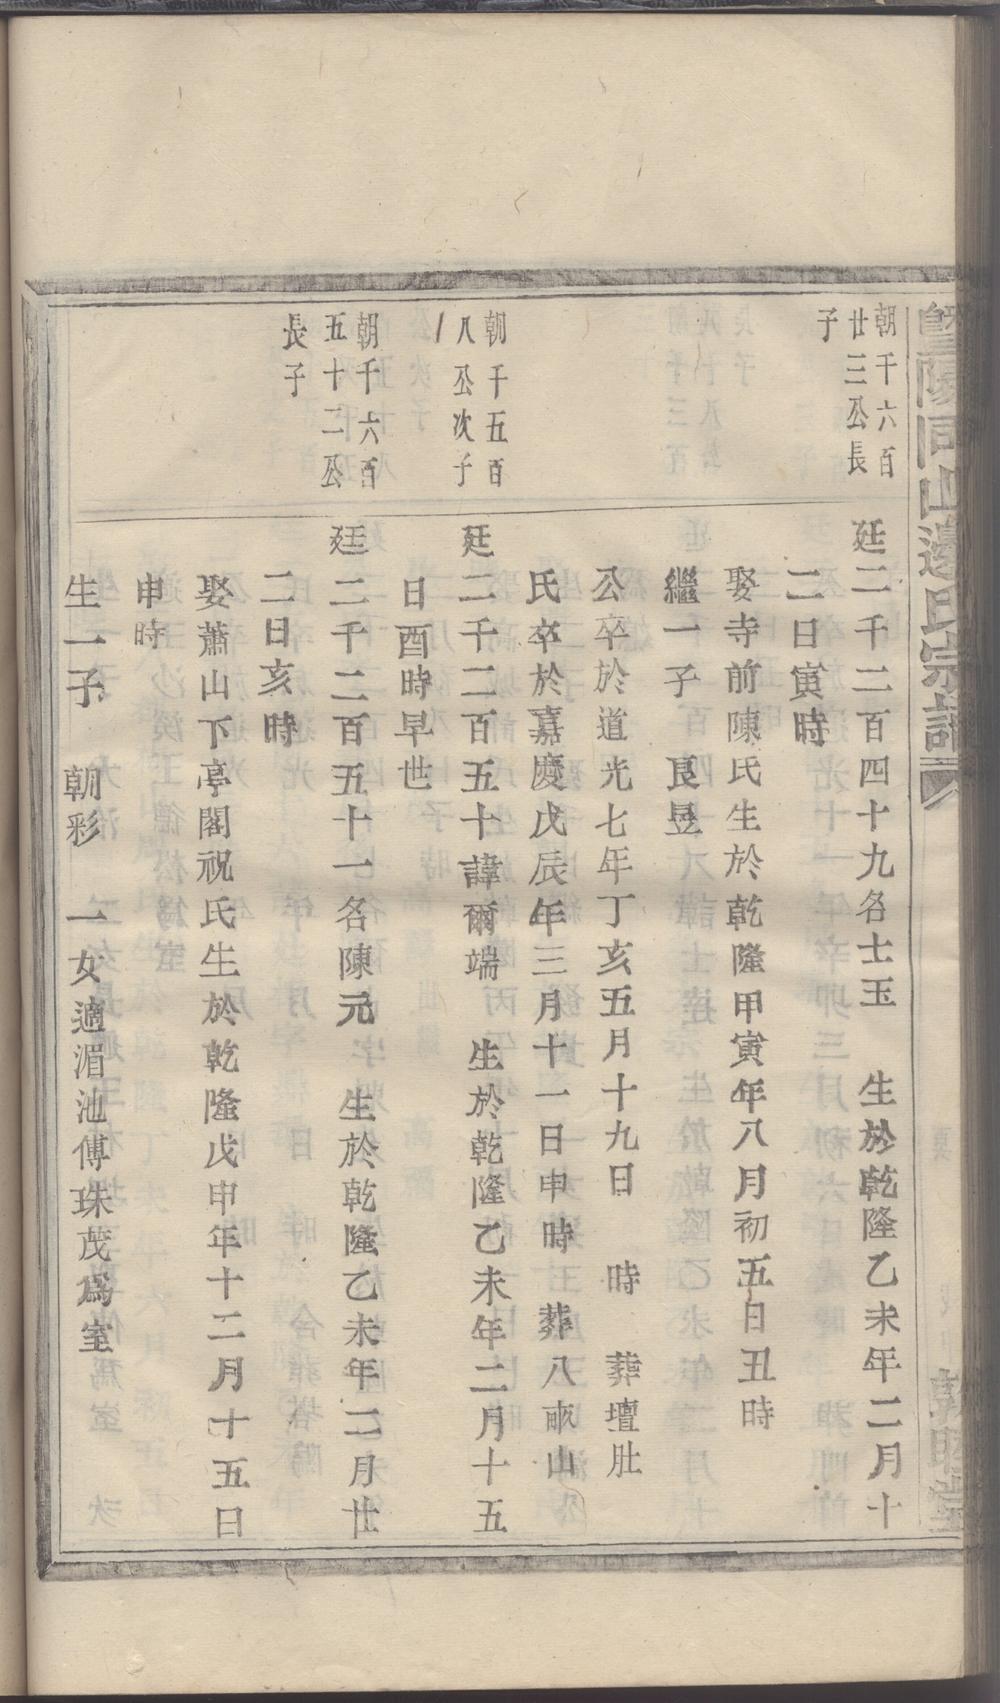 暨陽同山邊氏宗譜
敦睦堂
朝千六百
廿三公長
子
廷二千二百四十九名士玉 生於乾隆乙未年二月十
二日寅時
娶寺前陳氏生於乾隆甲寅年八月初五日丑時
繼一子 良昱
公卒於道光七年丁亥五月十九日 時 葬壇肚
氏卒於嘉慶戊辰年三月十一日申時 葬八畝山
朝千五百
八公次子
廷二千二百五十諱爾端 生於乾隆乙未年二月十五
日酉時早世
朝千六百
五十二公
長子
廷二千二百五十一名陳元 生於乾隆乙未年二月廿
二日亥時
娶蕭山下亭閣祝氏生於乾隆戊申年十二月十五日
申時
生一子 朝彩 一女適湄池傅珠茂爲室